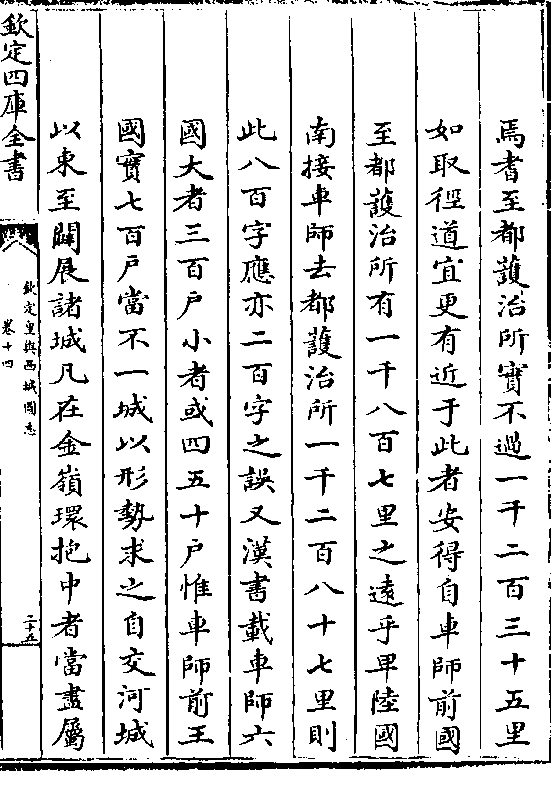 焉耆至都䕶治所實不過一千二百三十五里
如取徑道宜更有近于此者安得自車師前國
至都䕶治所有一千八百七里之逺乎卑陸國
南接車師去都䕶治所一千二百八十七里則
此八百字應亦二百字之誤又漢書載車師六
國大者三百户小者或四五十户惟車師前王
國實七百户當不一城以形勢求之自交河城
以東至闢展諸城凡在金嶺環抱中者當盡屬
欽定四庫全書
欽定皇輿西域圖志
卷十四
二十五